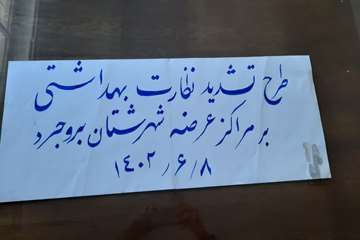 طرح تشدید نظارت بهداشتی
بر مراکز عرضه شهرستان بروجرد
۱۴۰۲/۶/۸